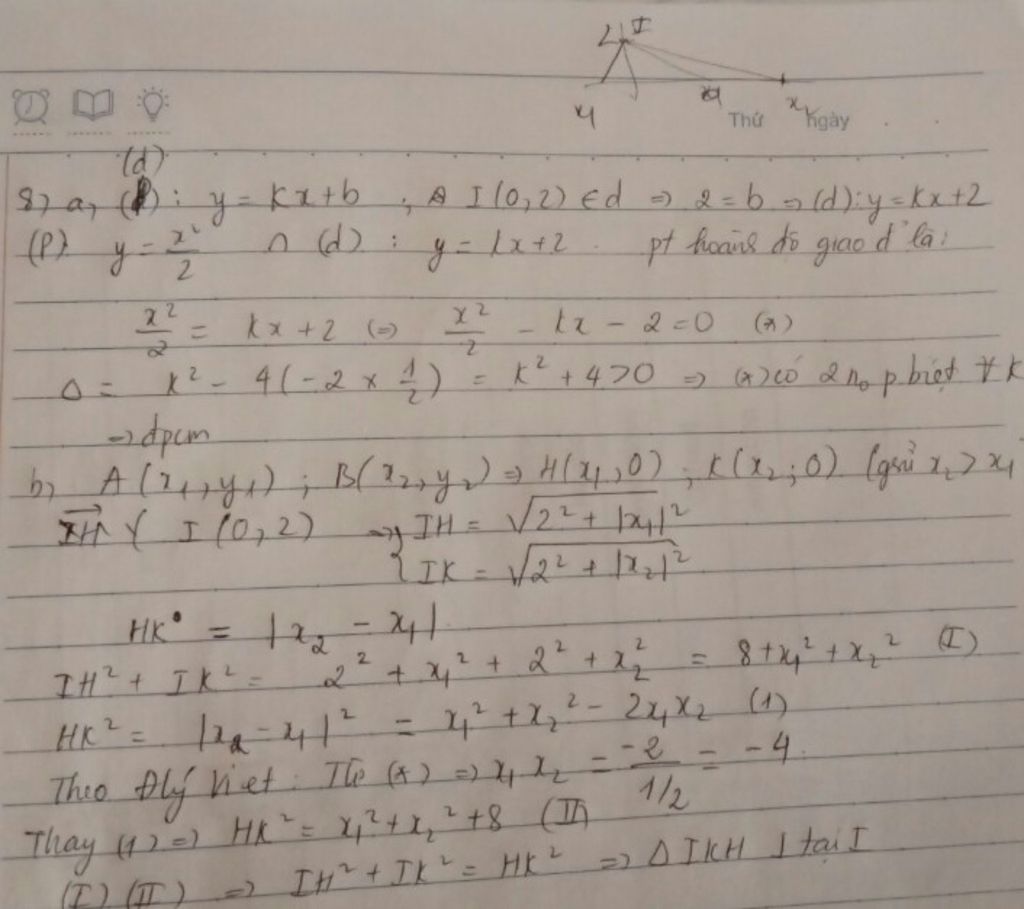 2 I
x₁ x₂
Thứ Ngày
8) a, (d): y = kx + b ; I(0,2) ∈ d => 2 = b => (d): y = kx+2
(P) y = x²/2 ∩ (d) : y = kx+2 . pt hoành độ giao đ' là:
x²/2 = kx + 2 (=) x²/2 - kx - 2 = 0 (*)
Δ = k² - 4(-2 × 1/2) = k² + 4 > 0 => (*) có 2 no p biệt ∀ k
=> đpcm
b, A(x₁, y₁) ; B(x₂, y₂) => H(x₁, 0) ; K(x₂; 0) (gsử x₂ > x₁
I(0,2) => { IH = √(2² + |x₁|²)
IK = √(2² + |x₂|²)
HK = |x₂ - x₁|
IH² + IK² = 2² + x₁² + 2² + x₂² = 8 + x₁² + x₂² (I)
HK² = |x₂ - x₁|² = x₁² + x₂² - 2x₁x₂ (1)
Theo Đlý Viet: Từ (*) => x₁ x₂ = -2/1/2 = -4
Thay (1) => HK² = x₁² + x₂² + 8 (II)
(I) (II) => IH² + IK² = HK² => Δ IKH ⊥ tại I